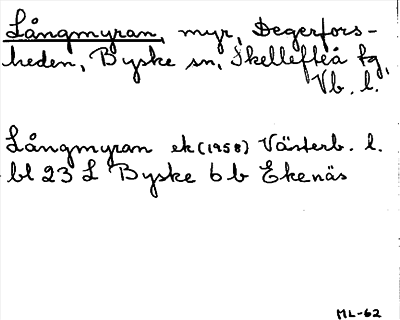 Långmyran, myr, Degerfors-
heden, Byske sn, Skellefteå tg,
Vb. l.
Långmyran ek (1958) Västerb. l.
bl 23 L Byske 6 b Ekenäs
ML-62